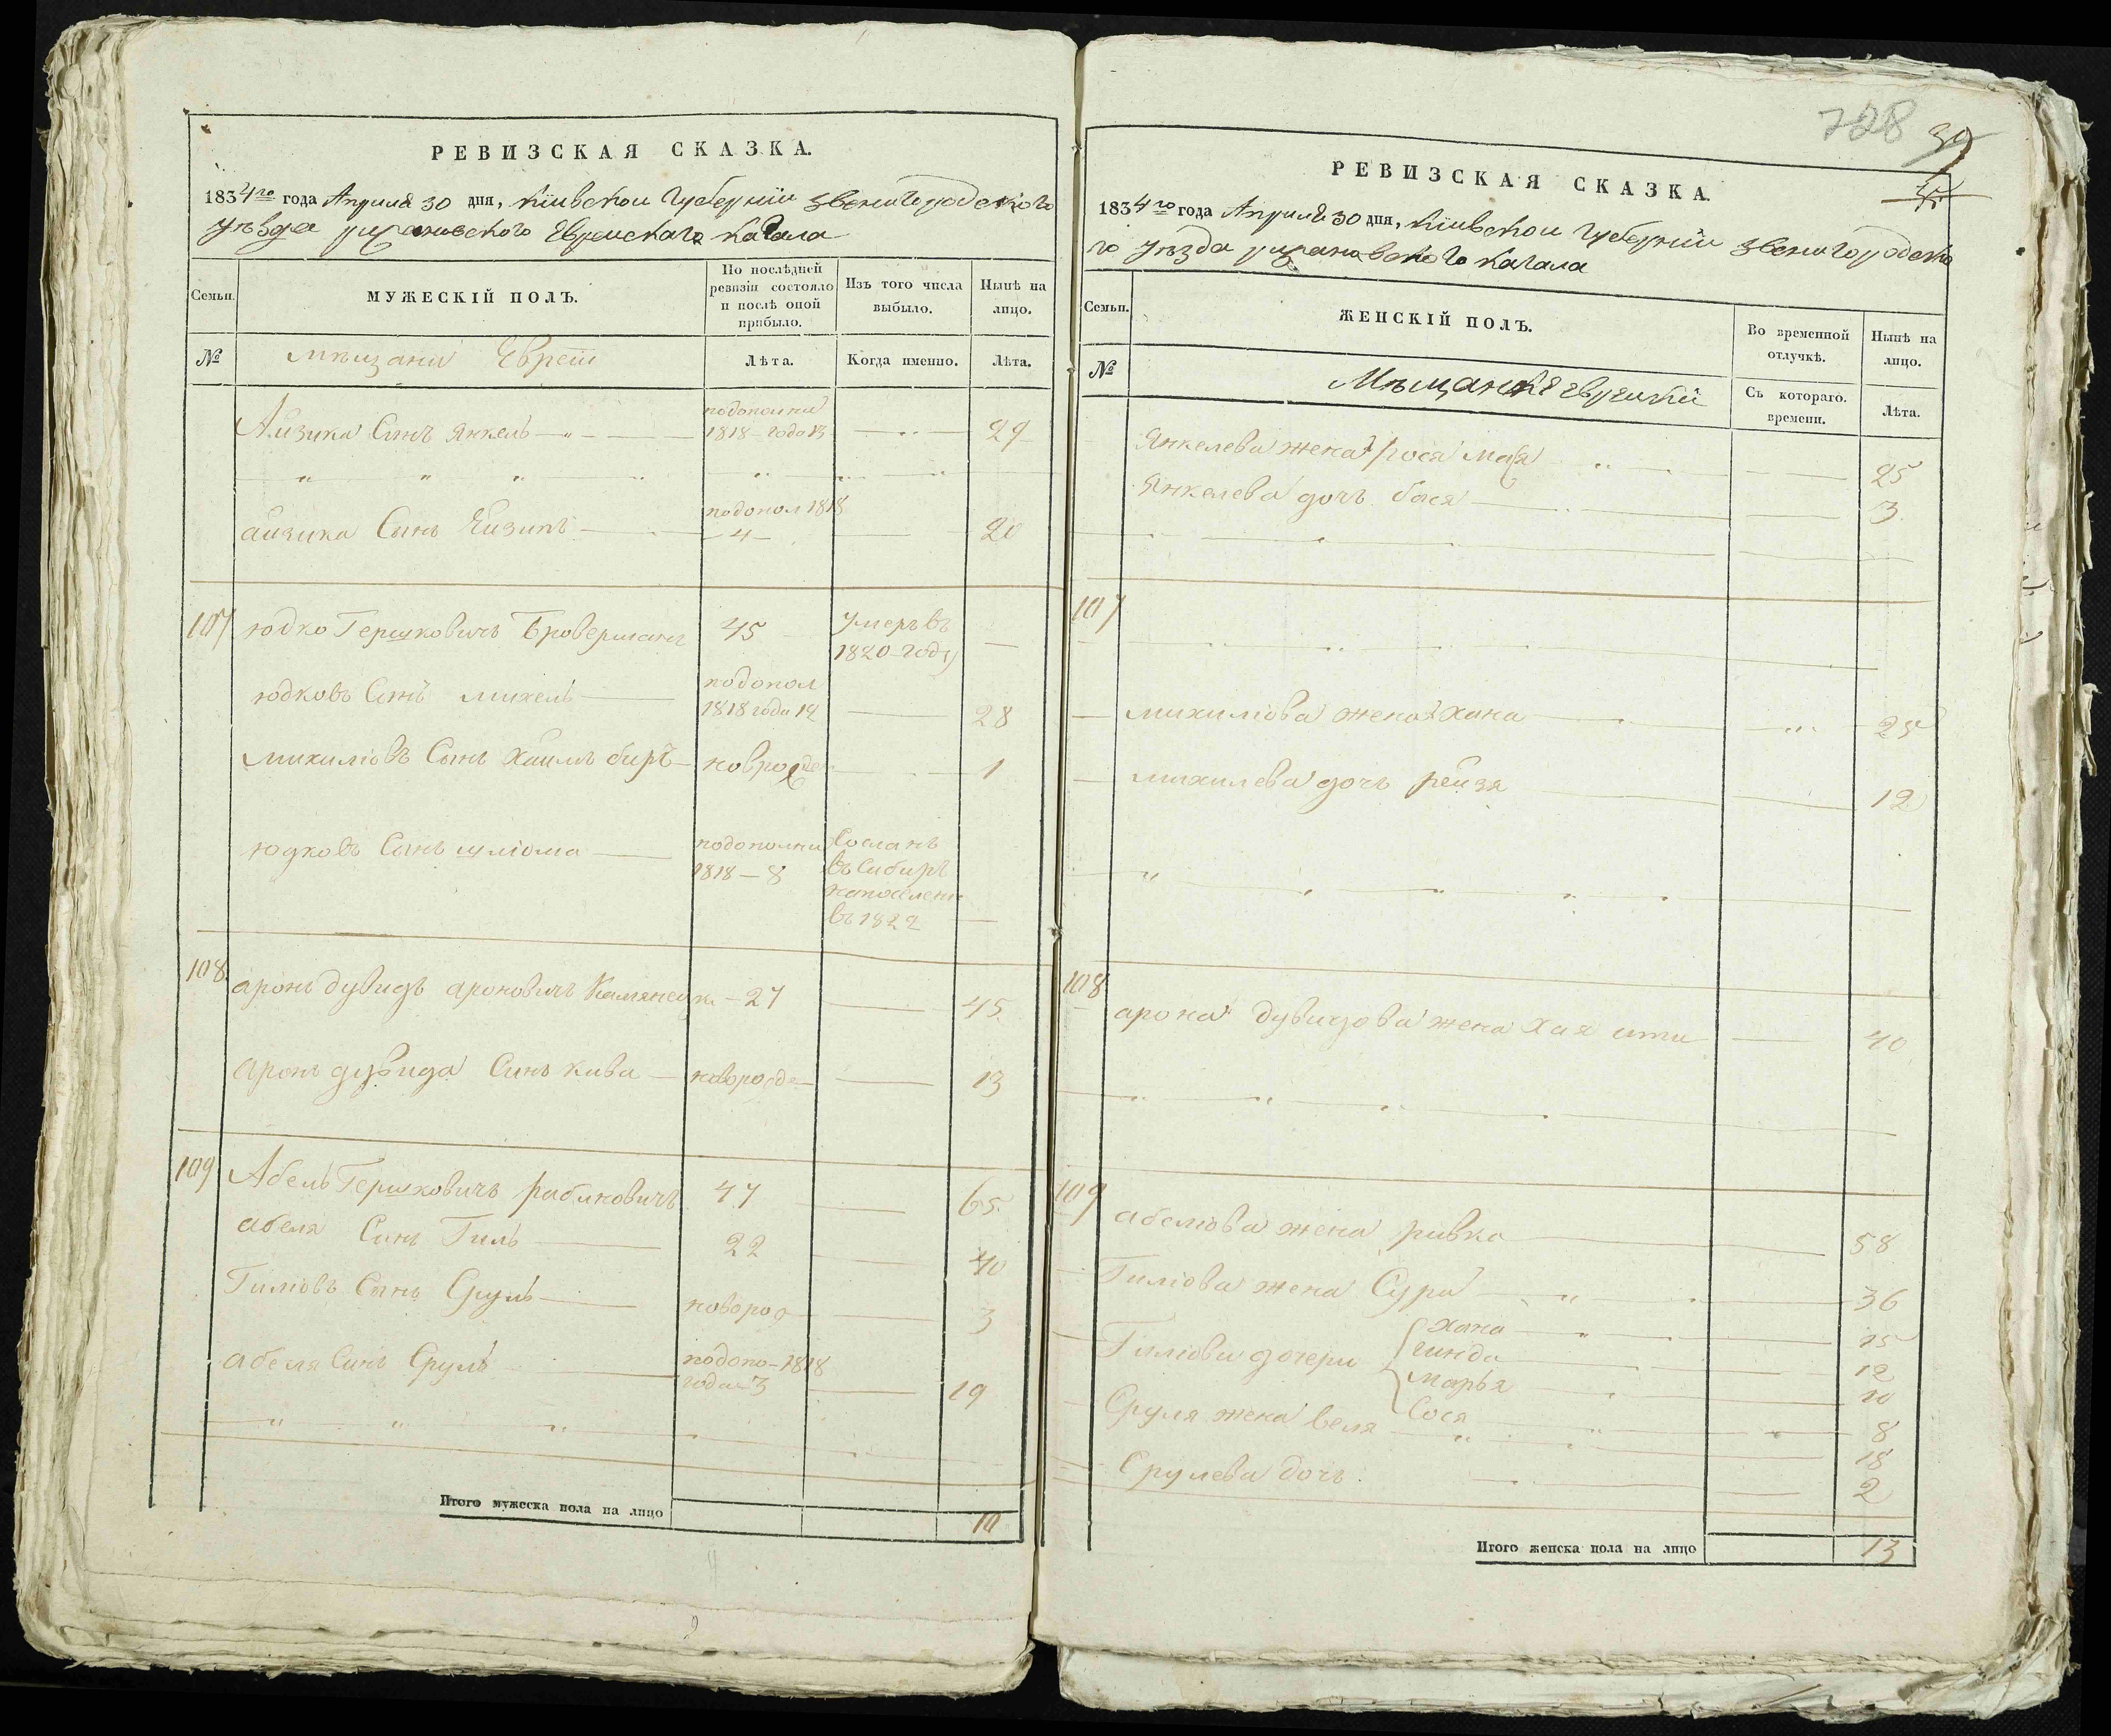 РЕВИЗСКАЯ СКАЗКА.
1834го года Апреля 30 дня, Кіивской Губерніи Звенигородского
уѣзда рижановского Еврейскаго Кагала
Семьи. МУЖЕСКІЙ ПОЛЪ. По послѣдней ревизіи состояло и послѣ оной прибыло. Изъ того числа выбыло. Нынѣ на лицо.
№ мещани Евреи Лѣта. Когда именно. Лѣта.
Айзика Синъ Янкель подополни 1818 года 13 29
айзика Синъ подопол 1818 4 20
107 юдко Гершковичъ Броверманъ 45 умеръ въ 1820 году
юдковъ Синъ михель подопол 1818 года 12 28
михиліовъ Синъ Хаимъ беръ новрожден 1
юдковъ Синъ шліома подополни 1818 - 8 Сосланъ въ Сибирь на поселени въ 1822
108 аронъ дувидъ ароновичъ Камянецки 27 45
аронъ дувида Синъ кива новорожде 13
109 Абель Гершковичъ рабиновичъ 47 65
абеля Синъ Гиль 22 40
Гиліовъ Синъ Сруль новорож 3
абеля Синъ Сруль подопо 1818 года 3 19
Итого мужеска пола на лицо 10
728
39
РЕВИЗСКАЯ СКАЗКА.
1834го года Апреля 30 дня, Кіивской Губерніи Звенигородско
го уѣзда рижановского кагала
Семьи. ЖЕНСКІЙ ПОЛЪ. Во временной отлучкѣ. Нынѣ на лицо.
№ Мещанки еврейки Съ котораго. времени. Лѣта.
Янкелева жена рося 25
Янкелева дочъ бася 3
107
михиліова жена хана 25
михилева дочъ рейзя 12
108 арона дувидова жена Хая ити 40
109 абеліова жена ривка 58
Гиліова жена Сура 36
Гиліови дочери { Хана 15
гинда 12
марья 10
Сося 8
Сруля жена беля 18
Срулева дочъ 2
Итого женска пола на лицо 13